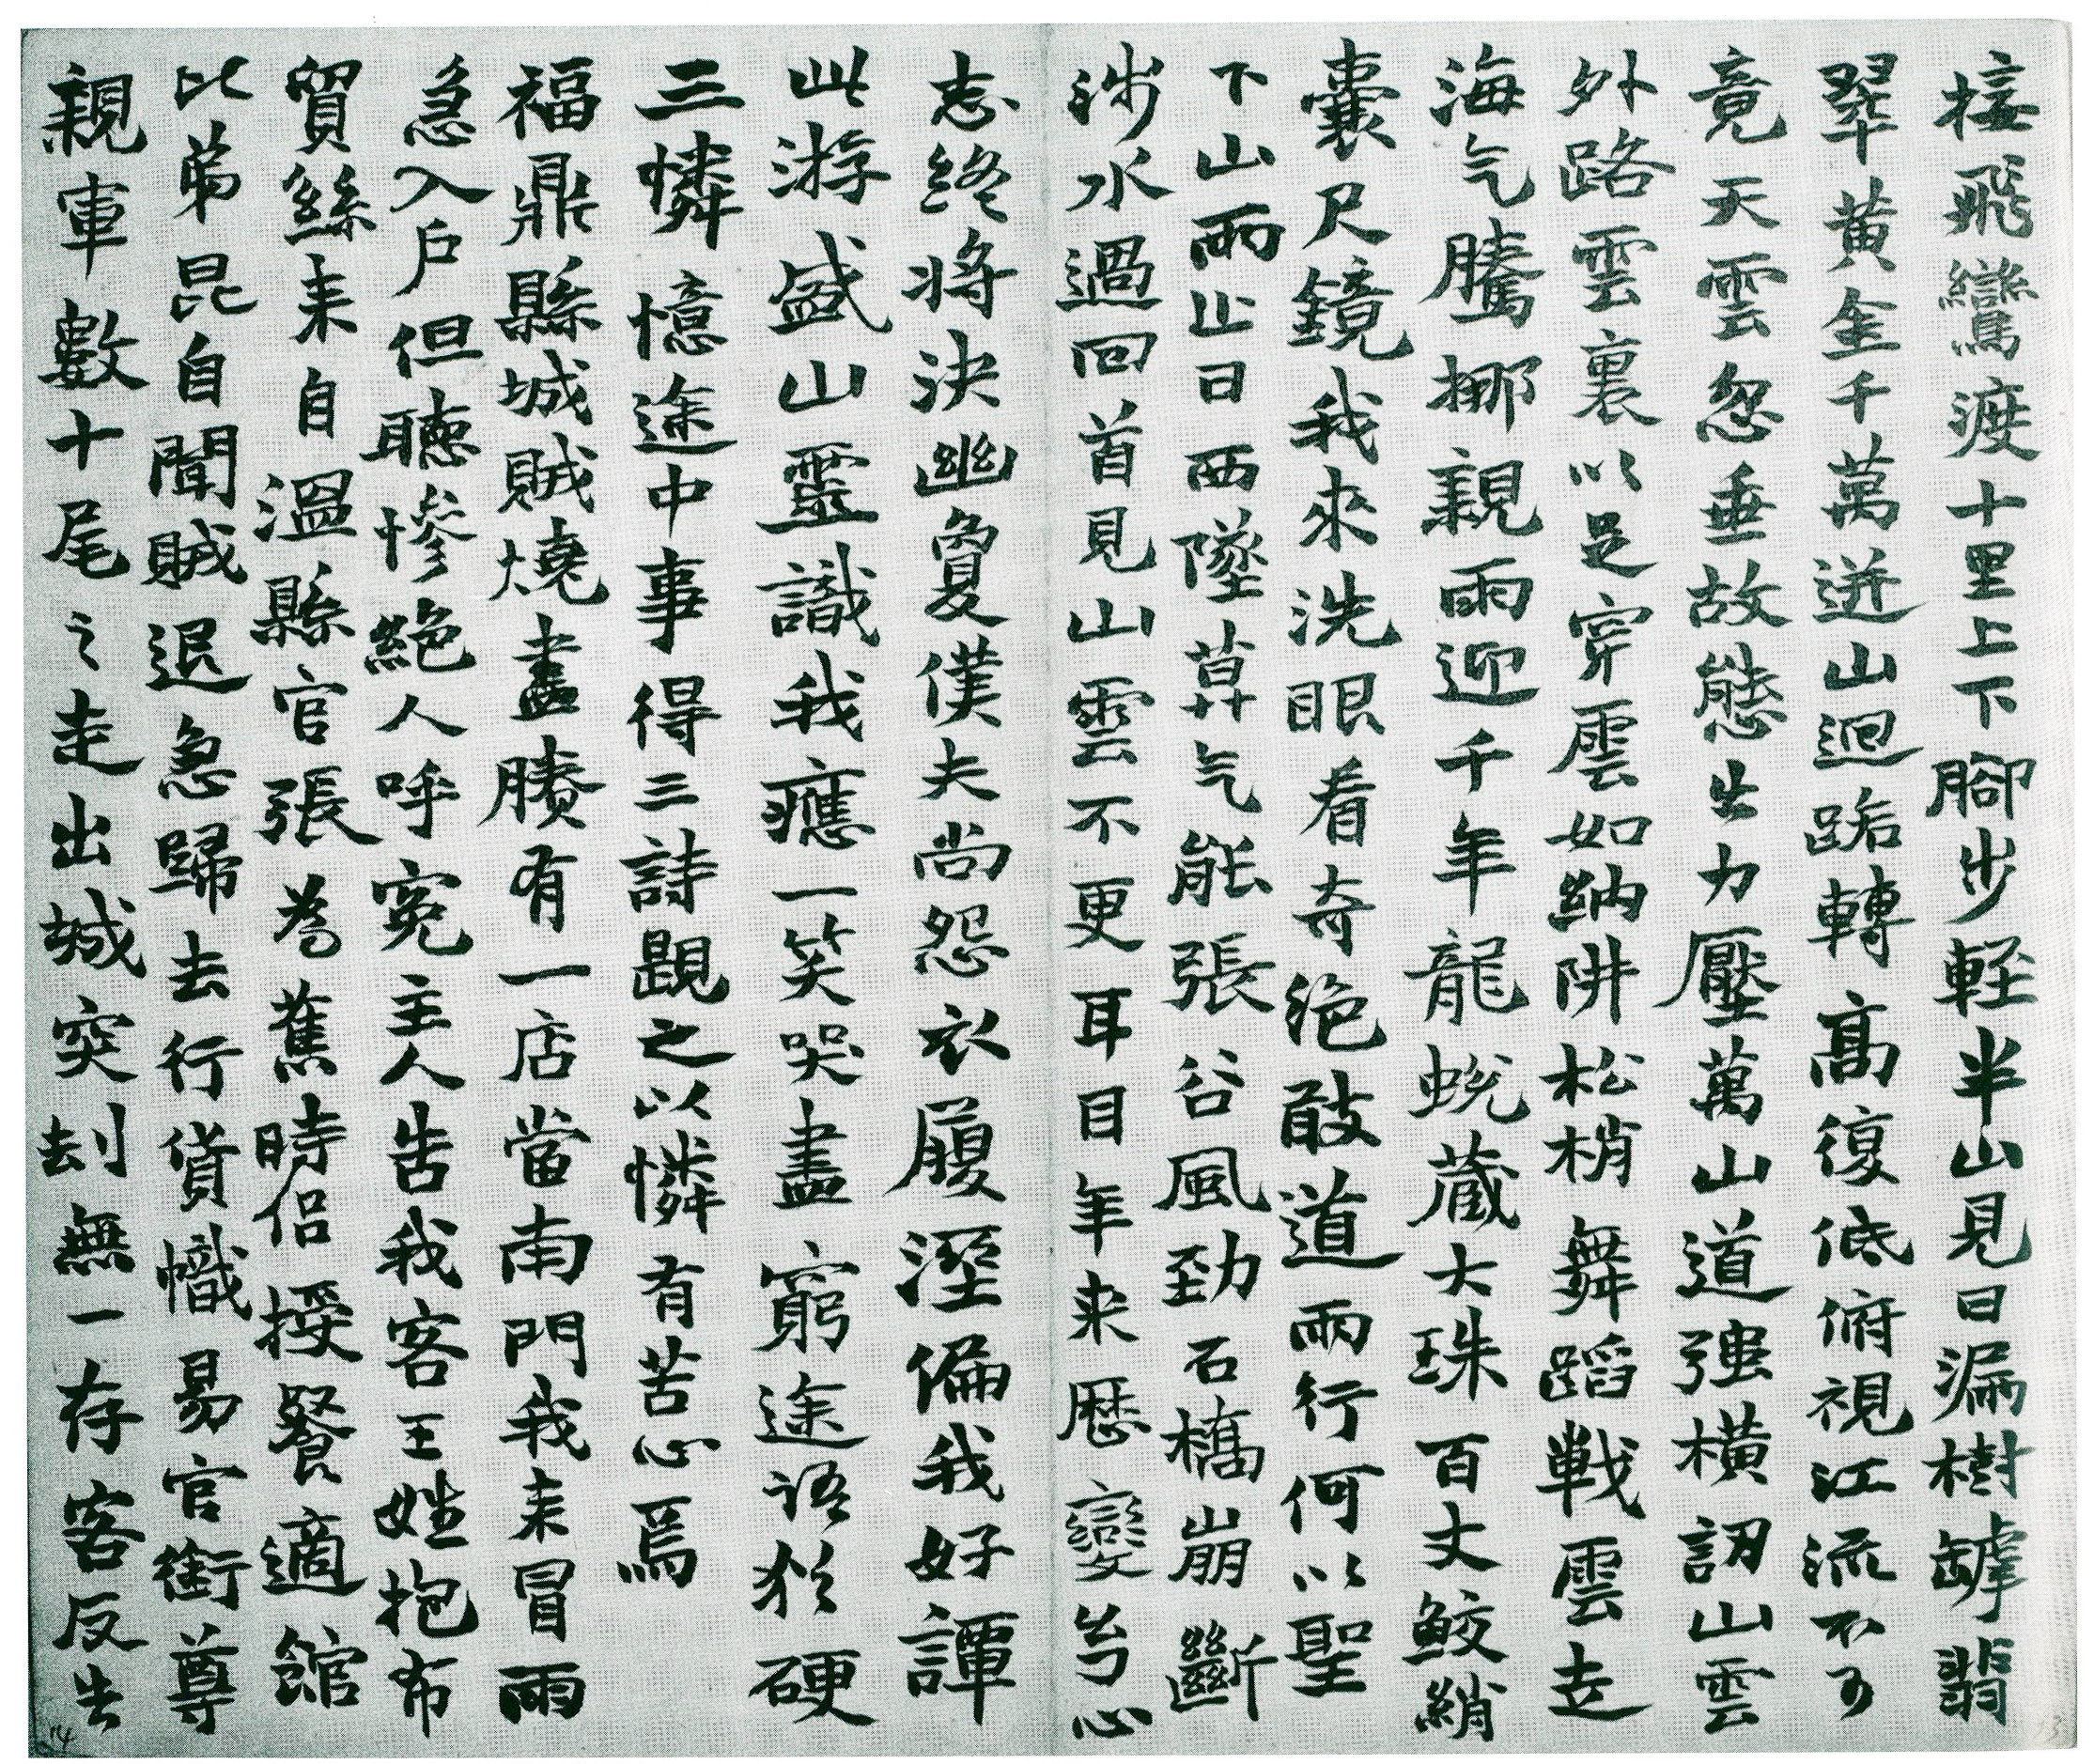 接飛鸞渡十里上下腳步輕半山見日漏樹罅翡
翠黃金千萬迸山迴路轉高復低俯視江流不可
竟天雲忽垂故態出力壓萬山道強橫認山雲
外路雲裏以足穿雲如納阱松梢舞蹈戰雲走
海气騰挪親雨迎千年龍蛻藏大珠百丈鮫綃
囊尺鏡我來洗眼看奇绝敢道雨行何以聖
下山雨止日西墜草气能張谷風勁石橋崩斷
涉水過回首見山雲不更耳目年来歷變兮心
志終將決幽夐僕夫尚怨衣履溼偏我好譚
此游盛山靈識我應一笑哭盡窮途語猶硬
三憐 憶途中事得三詩題之以憐有苦心焉
福鼎縣城賊燒盡賸有一店當南門我来冒雨
急入戶但聽慘絕人呼寃主人告我客王姓抱布
貿絲来自溫縣官張為舊時侶授餐適館
比弟昆自聞賊退急歸去行貨幟易官銜尊
親軍數十尾之走出城突刦無一存客反出